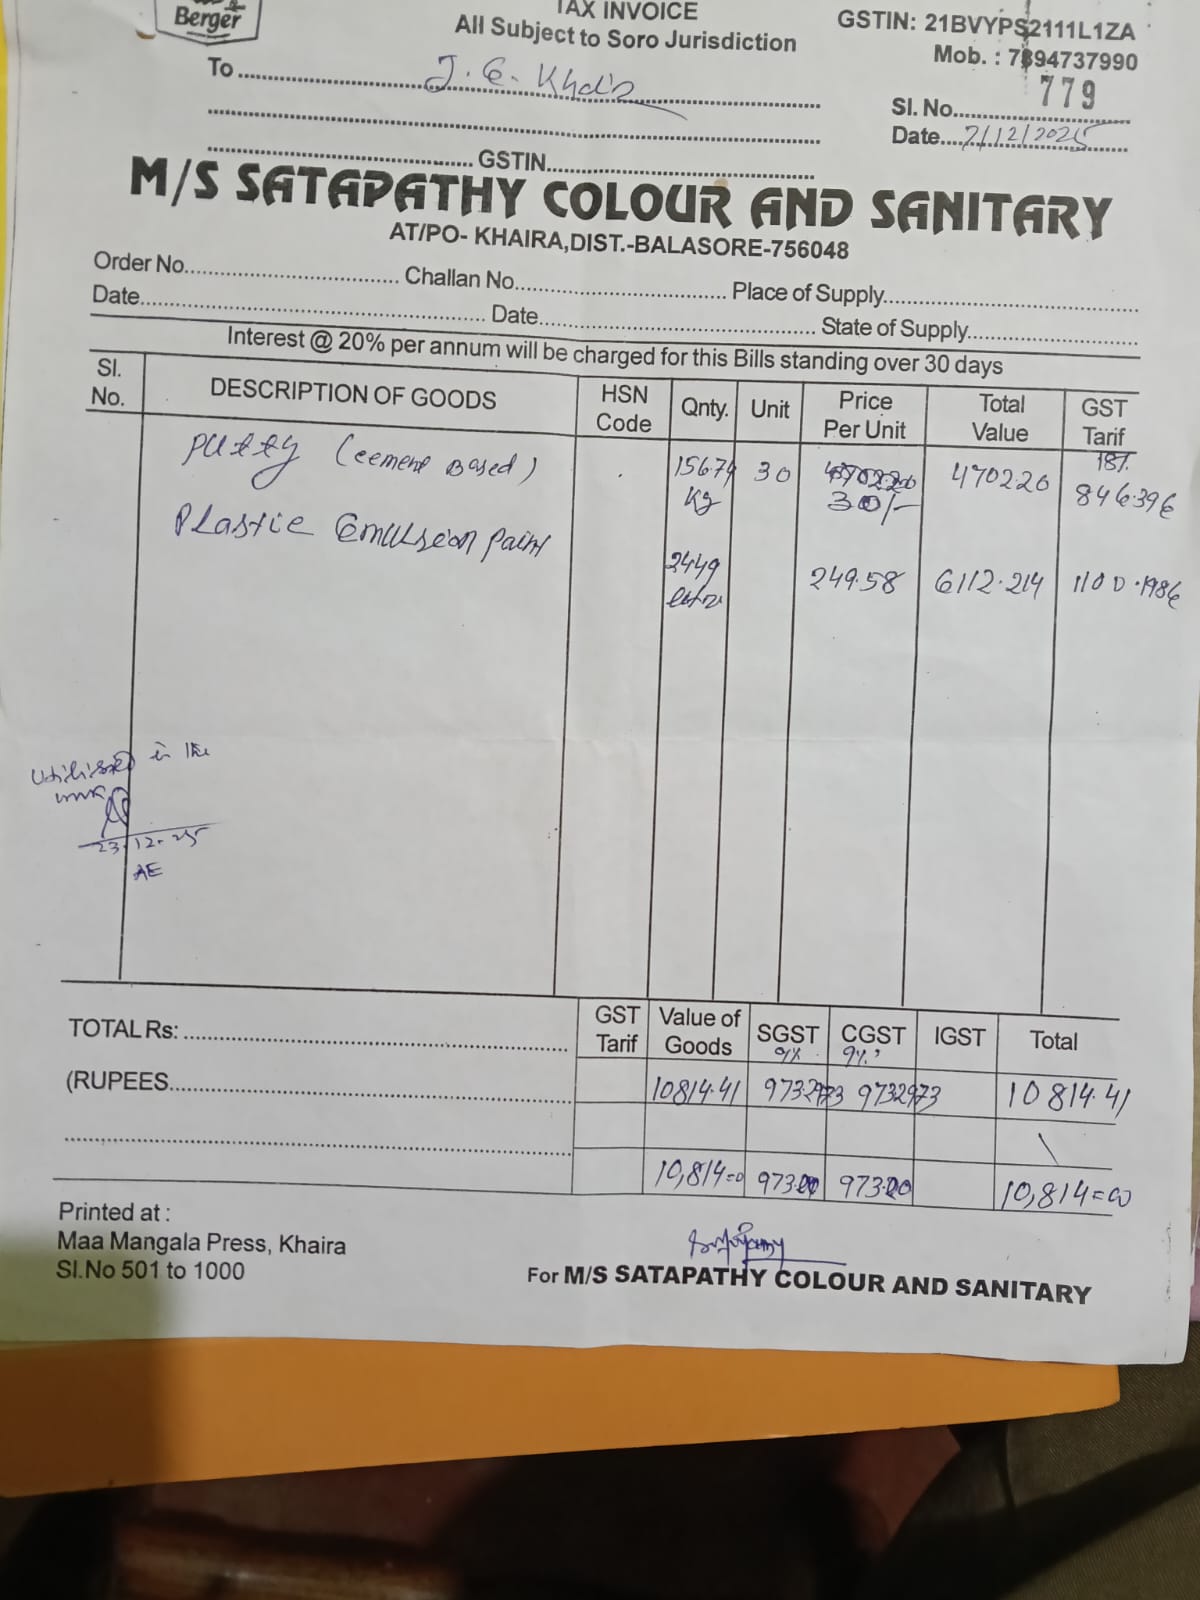 Berger
TAX INVOICE
All Subject to Soro Jurisdiction
GSTIN: 21BVYPS2111L1ZA
Mob. : 7894737990
To J.E. Khaira
Sl. No. 779
Date 7/12/2025
GSTIN
M/S SATAPATHY COLOUR AND SANITARY
AT/PO- KHAIRA,DIST.-BALASORE-756048
Order No. Challan No. Place of Supply
Date Date State of Supply
Interest @ 20% per annum will be charged for this Bills standing over 30 days
Sl. No. DESCRIPTION OF GOODS HSN Code Qnty. Unit Price Per Unit Total Value GST Tarif
18%
Putty (cement Based) 156.74 kg 30 30/- 4702.20 846.396
Plastic Emulsion paint 24.49 249.58 6112.214 1100.198
Utilised in the
work
23.12.25
AE
TOTAL Rs:
(RUPEES
GST Tarif Value of Goods SGST 9% CGST 9% IGST Total
10814.41 973.2973 973.2973 10814.41
10,814=00 973.00 973.00 10,814=00
Printed at :
Maa Mangala Press, Khaira
Sl.No 501 to 1000
For M/S SATAPATHY COLOUR AND SANITARY